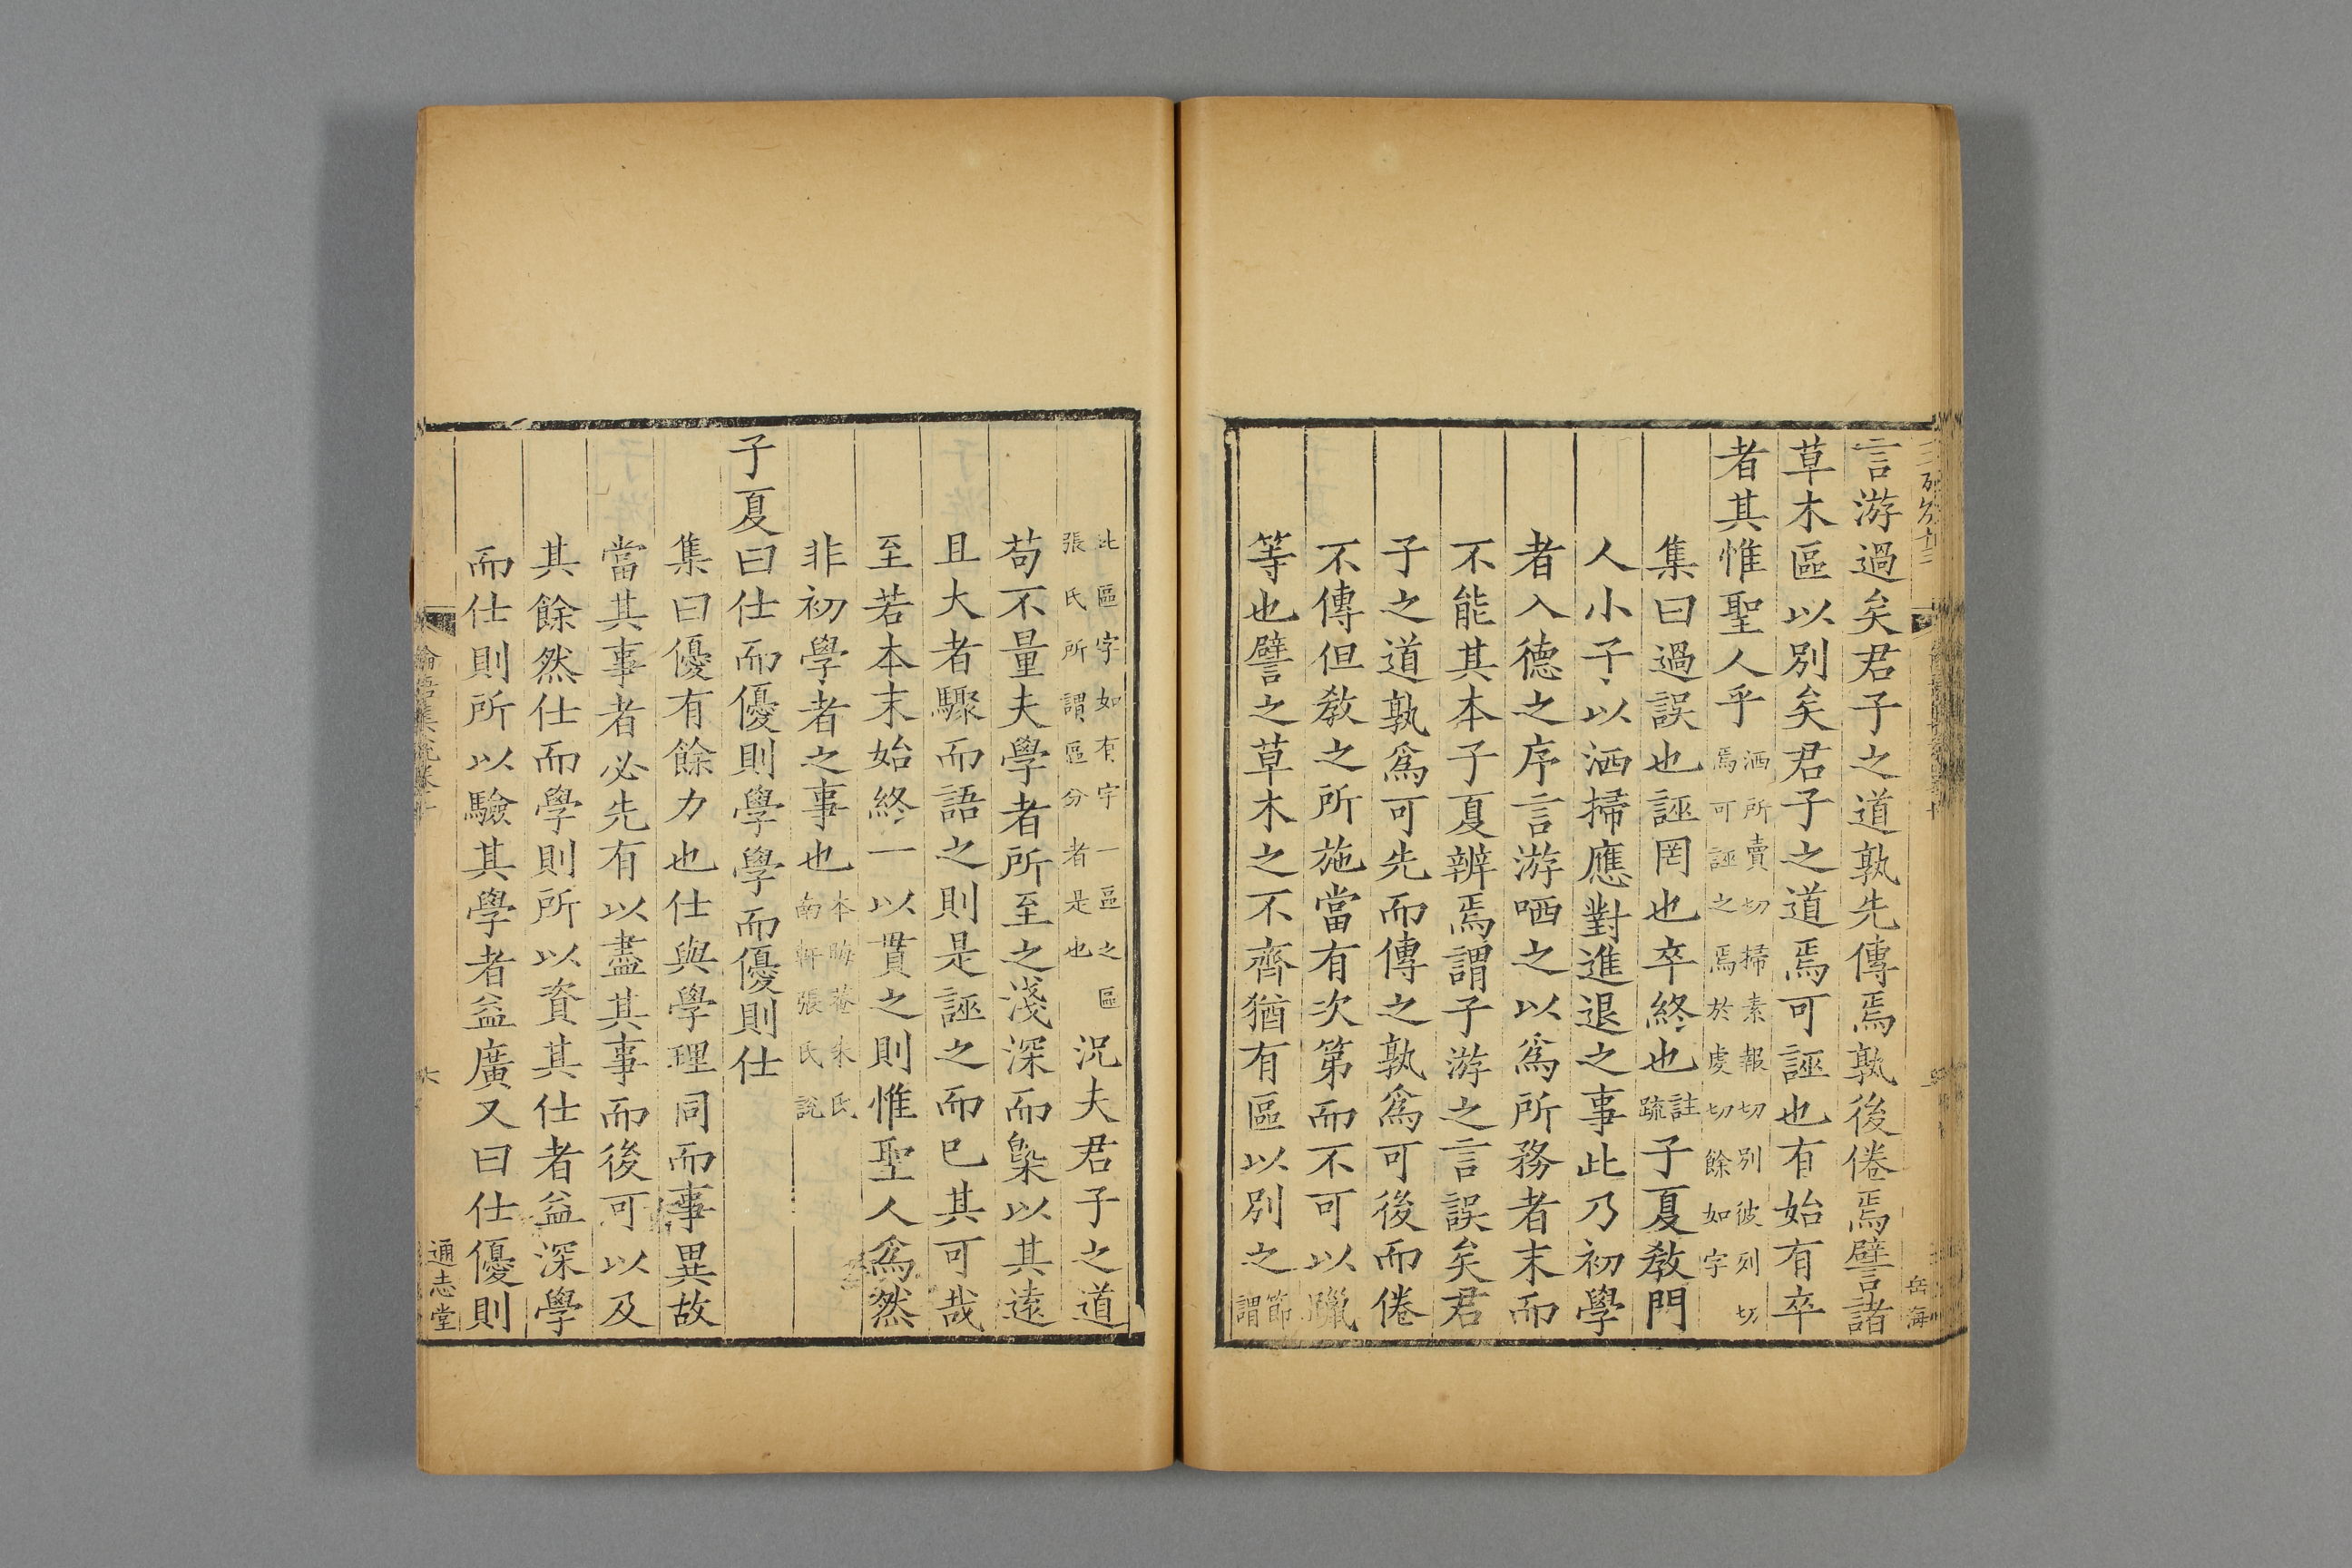 言游過矣君子之道孰先傳焉孰後倦焉譬諸
草木區以別矣君子之道焉可誣也有始有卒
者其惟聖人乎洒所賣切掃素報切別彼列切
焉可誣之焉於虔切餘如字
集曰過誤也誣罔也卒終也註疏子夏教門
人小子以洒掃應對進退之事此乃初學
者入德之序言游哂之以爲所務者末而
不能其本子夏辨焉謂子游之言誤矣君
子之道孰爲可先而傳之孰爲可後而倦
不傳但教之所施當有次第而不可以躐
等也譬之草木之不齊猶有區以別之節謂
此區字如有字一區之區
張氏所謂區分者是也況夫君子之道
苟不量夫學者所至之淺深而槩以其遠
且大者驟而語之則是誣之而已其可哉
至若本末始終一以貫之則惟聖人爲然
非初學者之事也本晦菴朱氏
南軒張氏說
子夏曰仕而優則學學而優則仕
集曰優有餘力也仕與學理同而事異故
當其事者必先有以盡其事而後可以及
其餘然仕而學則所以資其仕者益深學
而仕則所以驗其學者益廣又曰仕優則
通志堂